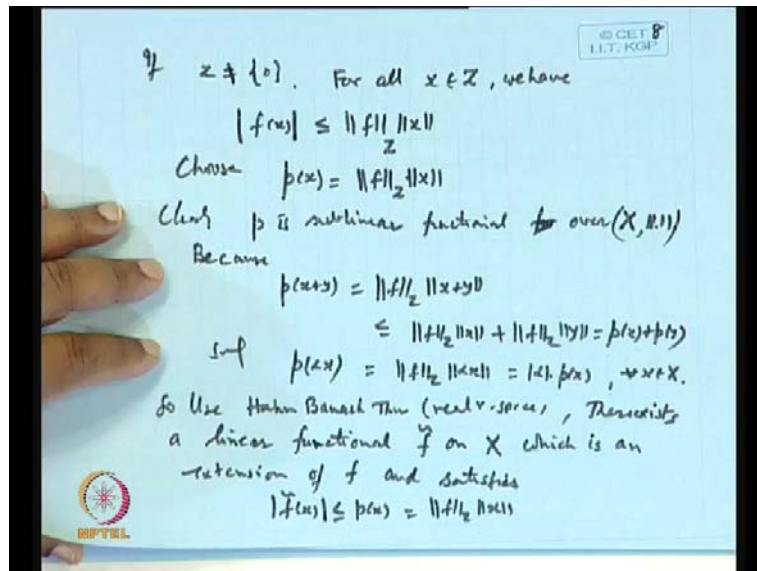 © CET 8
I.I.T. KGP
If Z ≠ {0}. For all x ∈ Z, we have
|f(x)| ≤ ||f||_Z ||x||
Choose p(x) = ||f||_Z ||x||
Clearly p is sublinear functional over (X, ||.||)
Because
p(x+y) = ||f||_Z ||x+y||
≤ ||f||_Z ||x|| + ||f||_Z ||y|| = p(x)+p(y)
p(αx) = ||f||_Z ||αx|| = |α|. p(x), ∀ x ∈ X.
So Use Hahn Banach Thm (real v. space), There exists
a linear functional f̃ on X which is an
extension of f and satisfies
|f̃(x)| ≤ p(x) = ||f||_Z ||x||
NPTEL